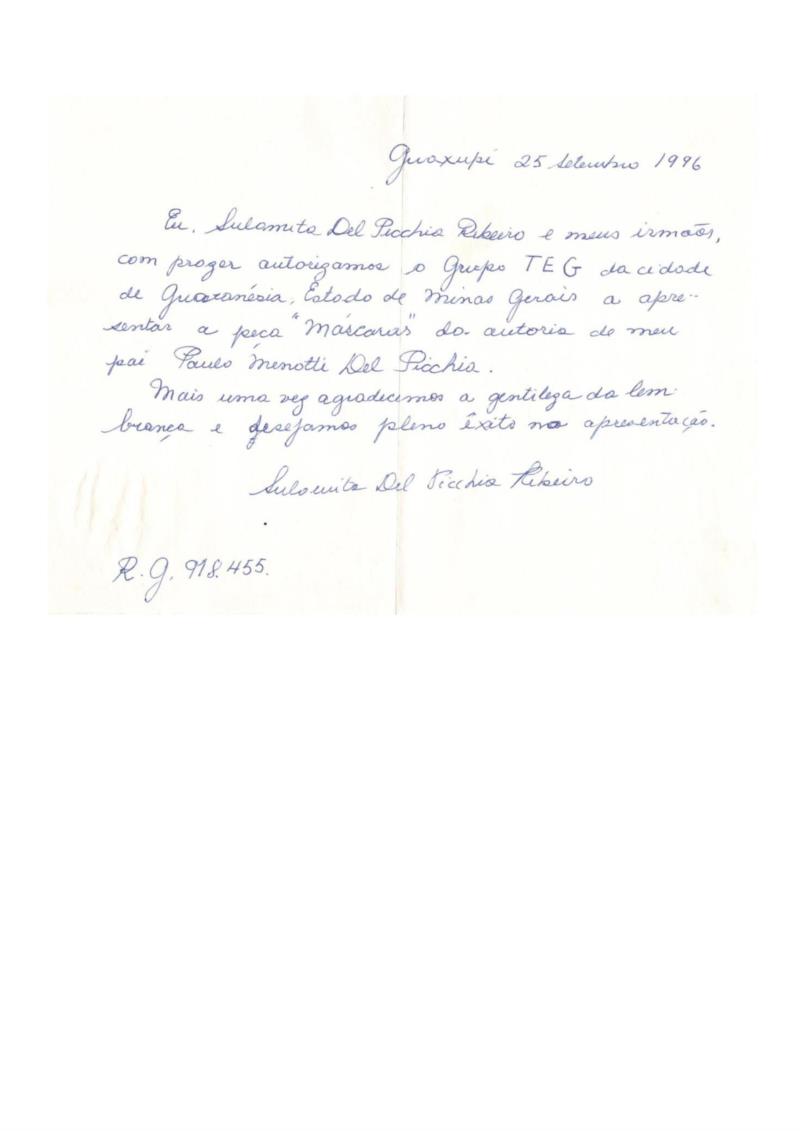 Guaxupé 25 setembro 1996
Eu, Sulamita Del Picchia Ribeiro e meus irmãos,
com prazer autorizamos o Grupo TEG da cidade
de Guaranésia, Estado de Minas Gerais a apre-
sentar a peça "Máscaras" da autoria de meu
pai Paulo Menotti Del Picchia.
Mais uma vez agradecemos a gentileza da lem-
brança e desejamos pleno êxito na apresentação.
Sulamita Del Picchia Ribeiro
R.G. 918.455.